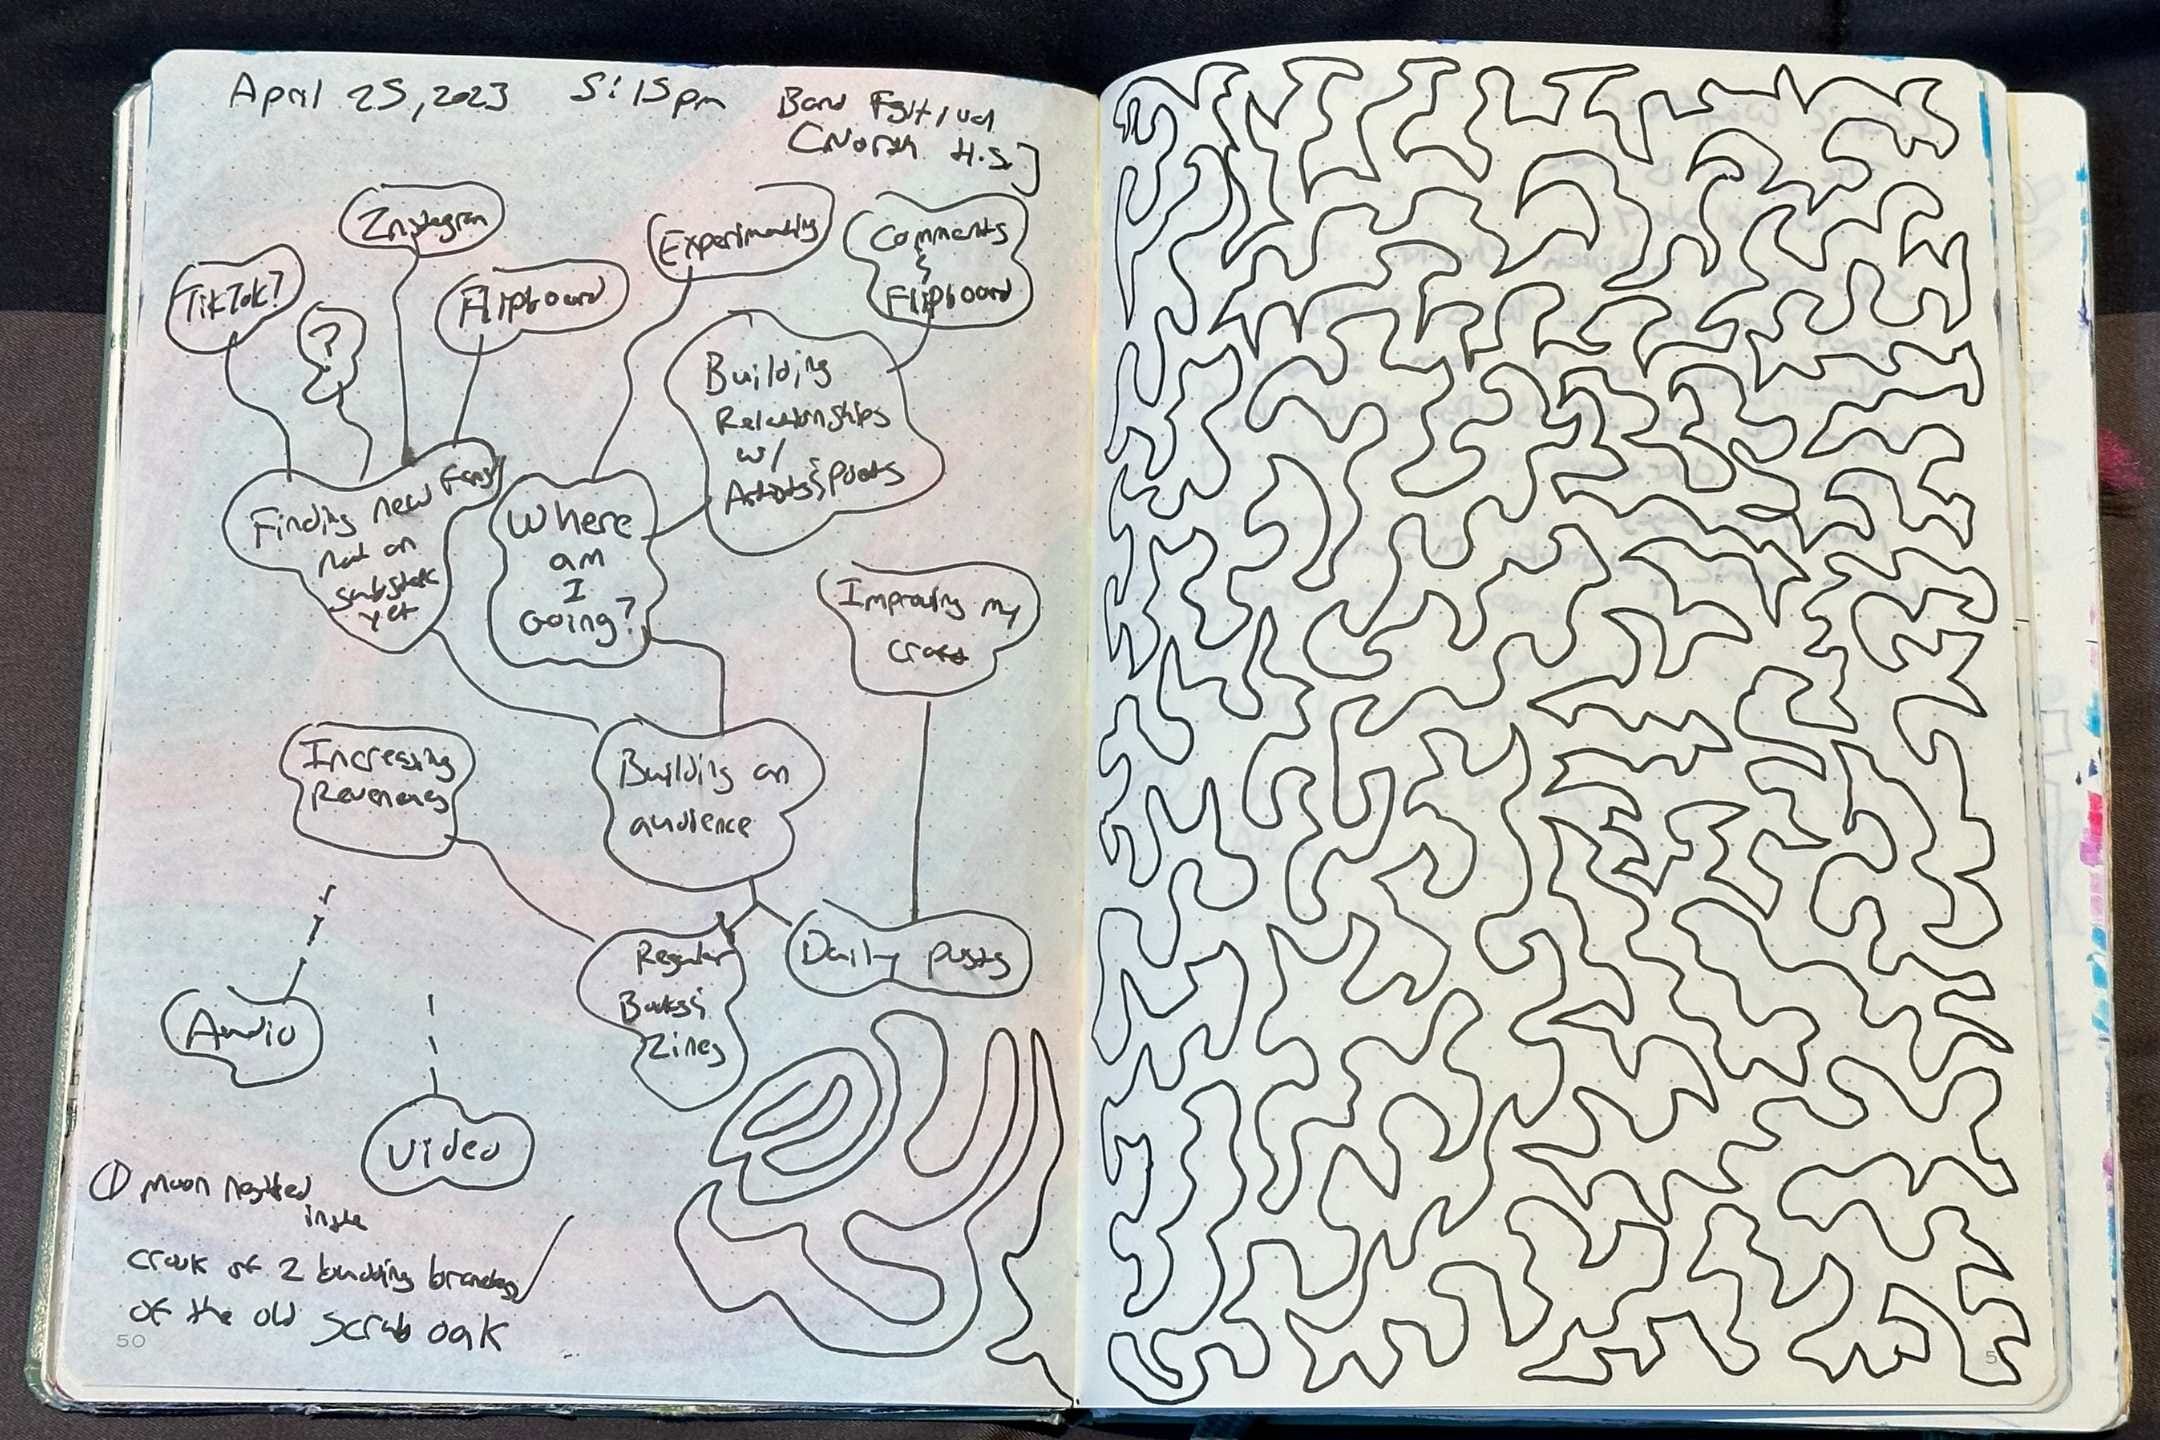 April 25, 2023 5:15pm Band Festival
CNorth H.S.]
Instagram
Experimenting
Comments
&
Flipboard
TikTok?
?
Flipboard
Building
Relationships
w/
Artists & Poets
Finding new Fans
not on
substack
yet
Where
am
I
Going?
Improving my
craft
Increasing
Revenues
Building an
audience
Regular
Books &
Zines
Daily posts
Audio
Video
① moon nestled
in the
crook of 2 budding branches /
of the old scrub oak
50
5